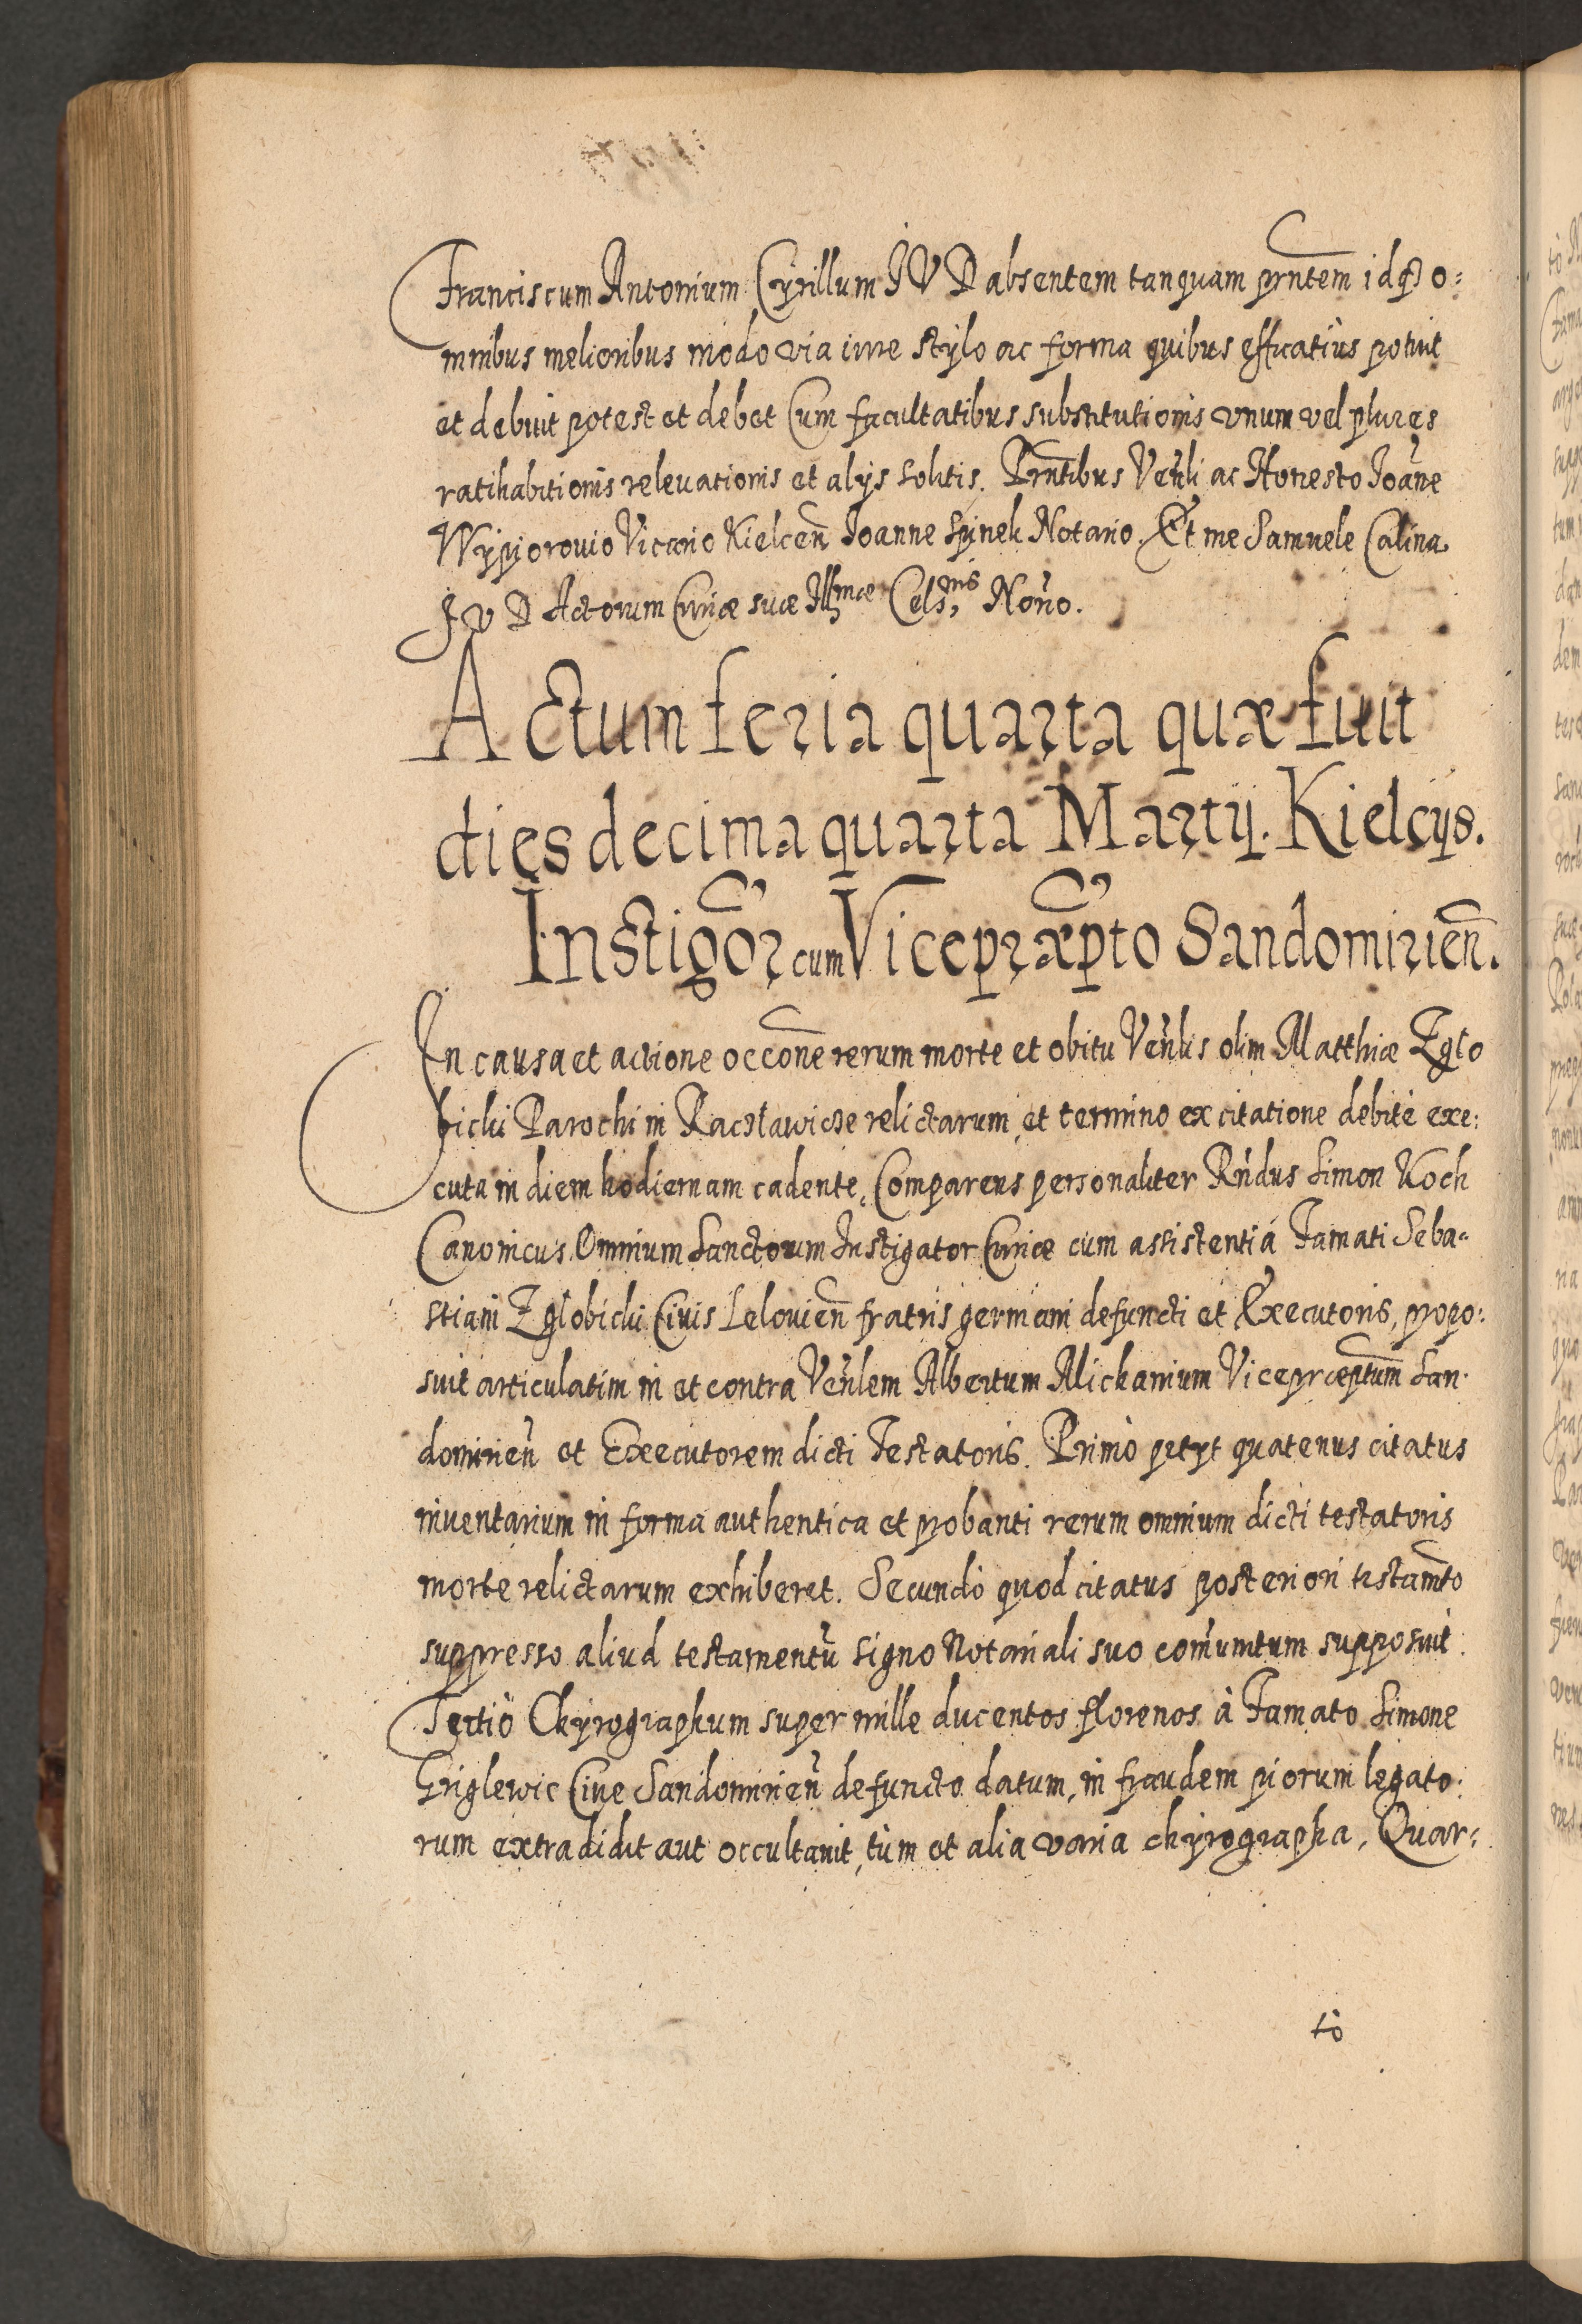 Franciscum Antonium Cyrillum J V D absentem tanquam prñtem idq̃ o=
mnibus melioribus modo via iure stylo ac forma quibus efficatiùs potuit
et debuit potest et debet Cum facultatibus substitutionis vnum vel plures
ratihabitionis releuationis et alijs solitis. Prñtibus Veñli ac Honesto Ioãne
Wypiorouio Vicario Kielceñ Ioanne Spinek Notario. Et me Samuele Calina
J V D Actorum Curiæ suæ Illmæ Cels,nis Noño.
Actum feria quarta quæ fuit
dies decima quarta Martij. Kielcijs.
Instigõr cum Vicepræp̃to Sandomirieñ.
In causa et actione occõne rerum morte et obitu Veñlis olim Matthiæ Zglo
bicki Parochi in Racsławicse relictarum, et termino ex citatione debitè exe=
cuta in diem hodiernam cadente, Comparens personaliter Rñdus Simon Koch
Canonicus Omnium Sanctorum Instigator Curiæ cum assistentiá Famati Seba=
stiani Zglobicki Ciuis Lelouieñ fratris germani defuncti et Executoris, propo=
suit articulatim in et contra Veñlem Albertum Alichanium Vicepræptum San=
domirieñ et Executorem dicti Testatoris. Primò petyt quatenus citatus
inuentarium in forma authentica et probanti rerum omnium dicti testatoris
morte relictarum exhiberet. Secundò quod citatus posteriori testam̃to
suppresso aliud testamentũ signo Notariali suo com̃unitum supposuit.
Tertiò Chyrographum super mille ducentos florenos à Famato Simone
Griglewic Ciue Sandomirieñ defuncto datum, in fraudem piorum legato=
rum extradidit aut occultauit, tùm et alia varia chyrographa, Quar=
tò